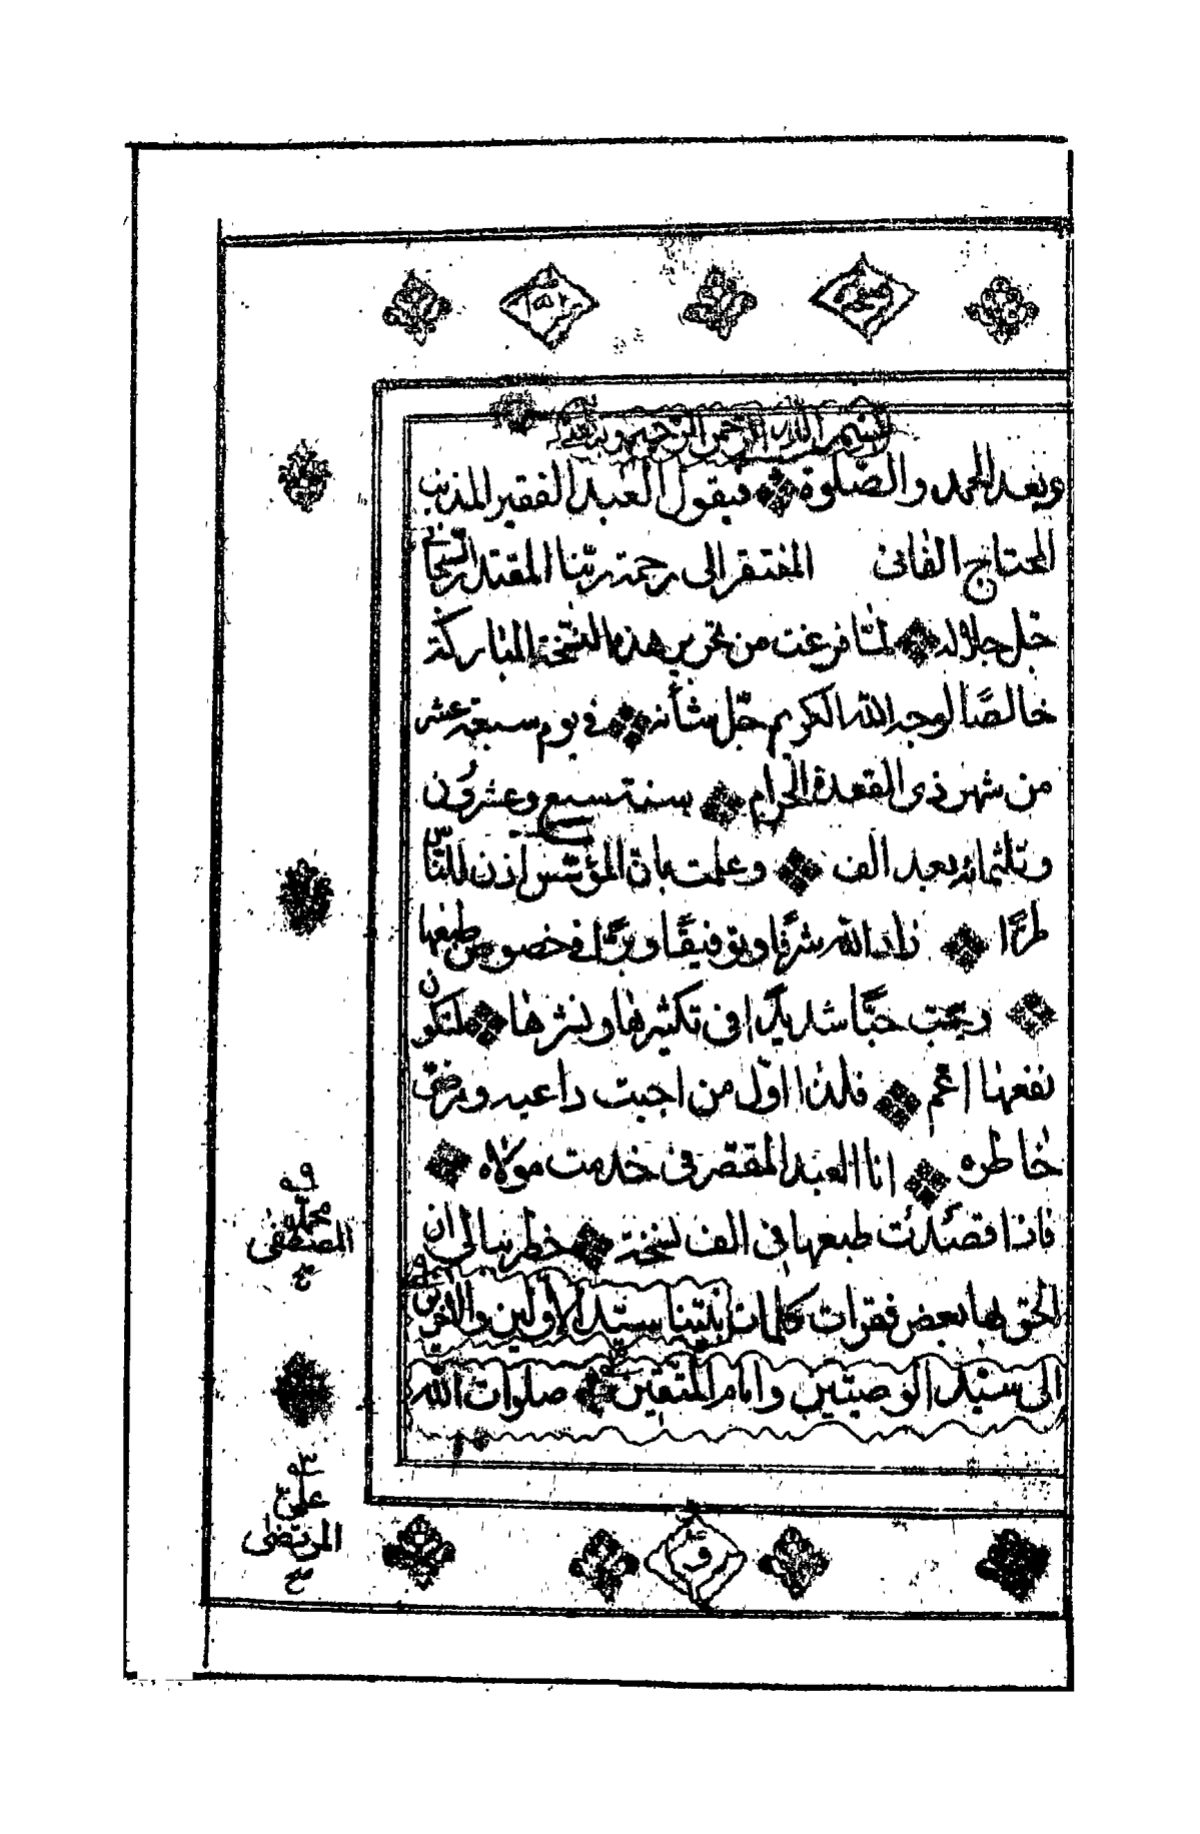 بسم الله الرحمن الرحیم وبه
وبعد الحمد والصّلوة فیقول العبد الفقیر المذنب
المحتاج الفانی المفتقر الی رحمة ربّنا المقتدر السّبحانی
جّل جلاله لمّا فرغت من تحریر هذه النسّخة المبارکة
خالصًا لوجه الله الکریم جّل شأنه فی یوم سبعة عشر
من شهر ذی القعدة الحرام سنة سبع وعشرون
وثلثمائه بعد الف وعلمت بانّ المؤسّس اذن للنّاس
طرًّا زاد الله شرفًا وتوفیقًا وبرًّا فی خصوص طبعها
ویحّب حبًّا شدیدًا فی تکثیرها ونشرها لتکون
نفعها اعّم فلذا اوّل من اجبت داعیه ومرضیّ
خاطره انا العبد المقصر فی خدمت مولاه
فاذا قصدت طبعها فی الف نسخة خطر ببالی ان
الحق بها بعض فقرات کلمات نبیّنا سیّد الاوّلین والآخرین
الی سیّد الوصیّین وامام المتّقین صلوات الله
محمّد
المصطفی
علی
المرتضی